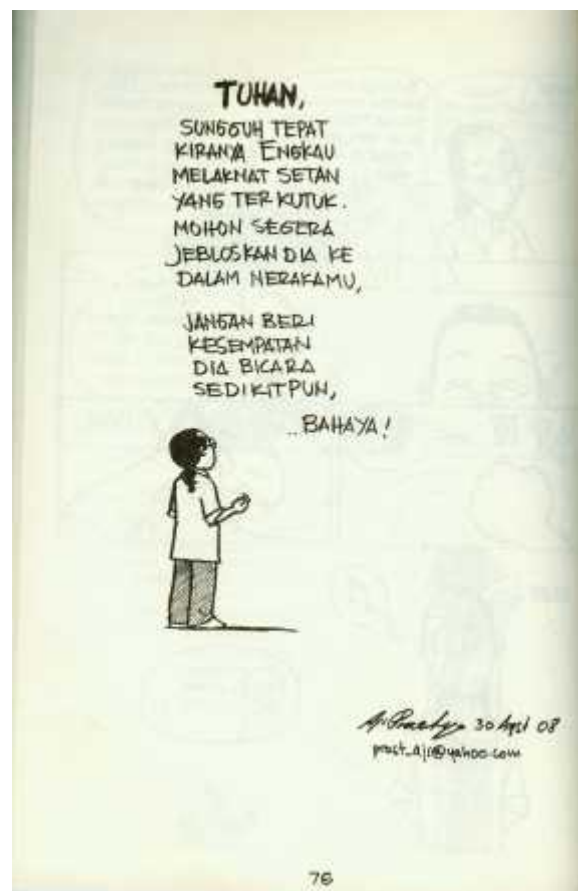 TUHAN,
SUNGGUH TEPAT
KIRANYA ENGKAU
MELAKNAT SETAN
YANG TERKUTUK.
MOHON SEGERA
JEBLOSKAN DIA KE
DALAM NERAKAMU,
JANGAN BERI
KESEMPATAN
DIA BICARA
SEDIKITPUN,
..BAHAYA!
30 Agst 08
76